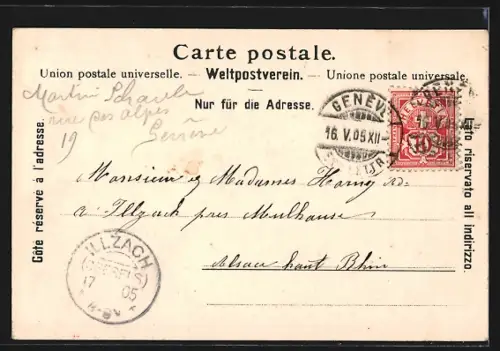 Carte postale.
Union postale universelle. — Weltpostverein. — Unione postale universale.
Nur für die Adresse.
Côté réservé à l'adresse.
Lato riservato all indirizzo.
Martin
rue des alpes
19 Genève
GENÈVE
16. V. 05 XII
10
Monsieur & Mesdames
à Illzach près Mulhouse
Alsace haut Rhin
ILLZACH
17 05